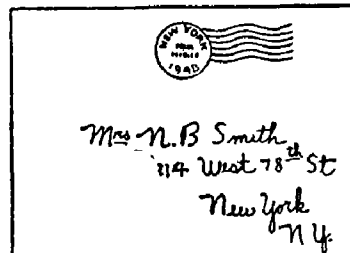 NEW YORK
1948
Mrs N.B Smith
114 West 78th St
New York
N Y.